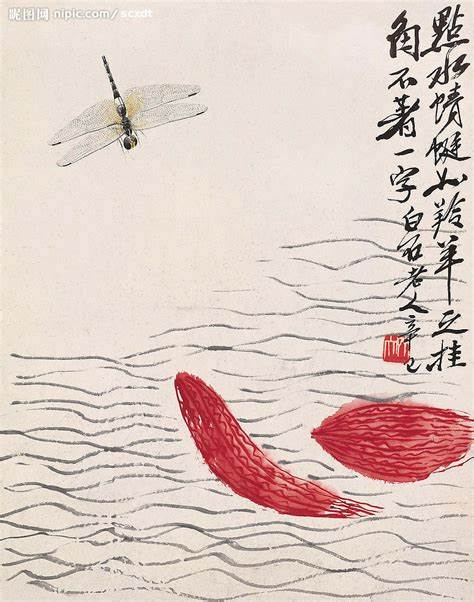 昵图网 nipic.com/scxdt
點水蜻蜓如羚羊之挂
角不著一字白石老人辛巳